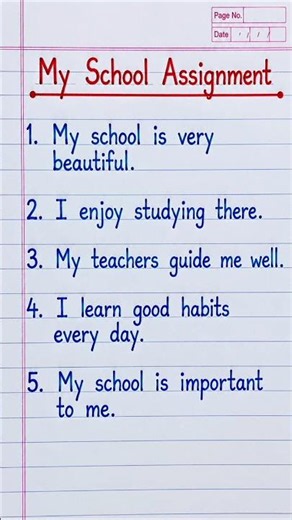 Page No.
Date / / /
My School Assignment
1. My school is very
beautiful.
2. I enjoy studying there.
3. My teachers guide me well.
4. I learn good habits
every day.
5. My school is important
to me.